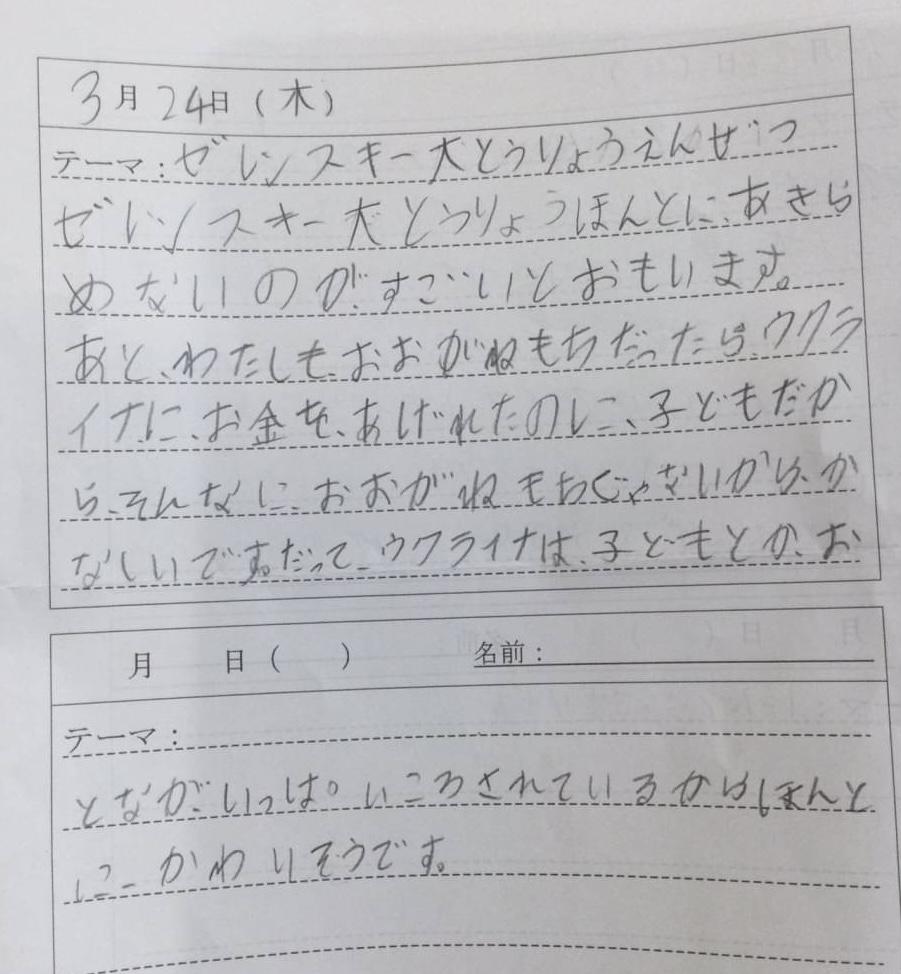 3月24日(木)
テーマ:ゼレンスキー大とうりょうえんぜつ
ゼレンスキー大とうりょうほんとに、あきら
めないのが、すごいとおもいます。
あと、わたしも、おおがねもちだったら、ウクラ
イナに、お金を、あげれたのに、子どもだか
ら、そんなに、おおがねもちじゃないから、か
なしいです。だって、ウクライナは、子どもとか、お
月 日( ) 名前:
テーマ:
となが、いっぱいころされているからほんと
に、かわいそうです。